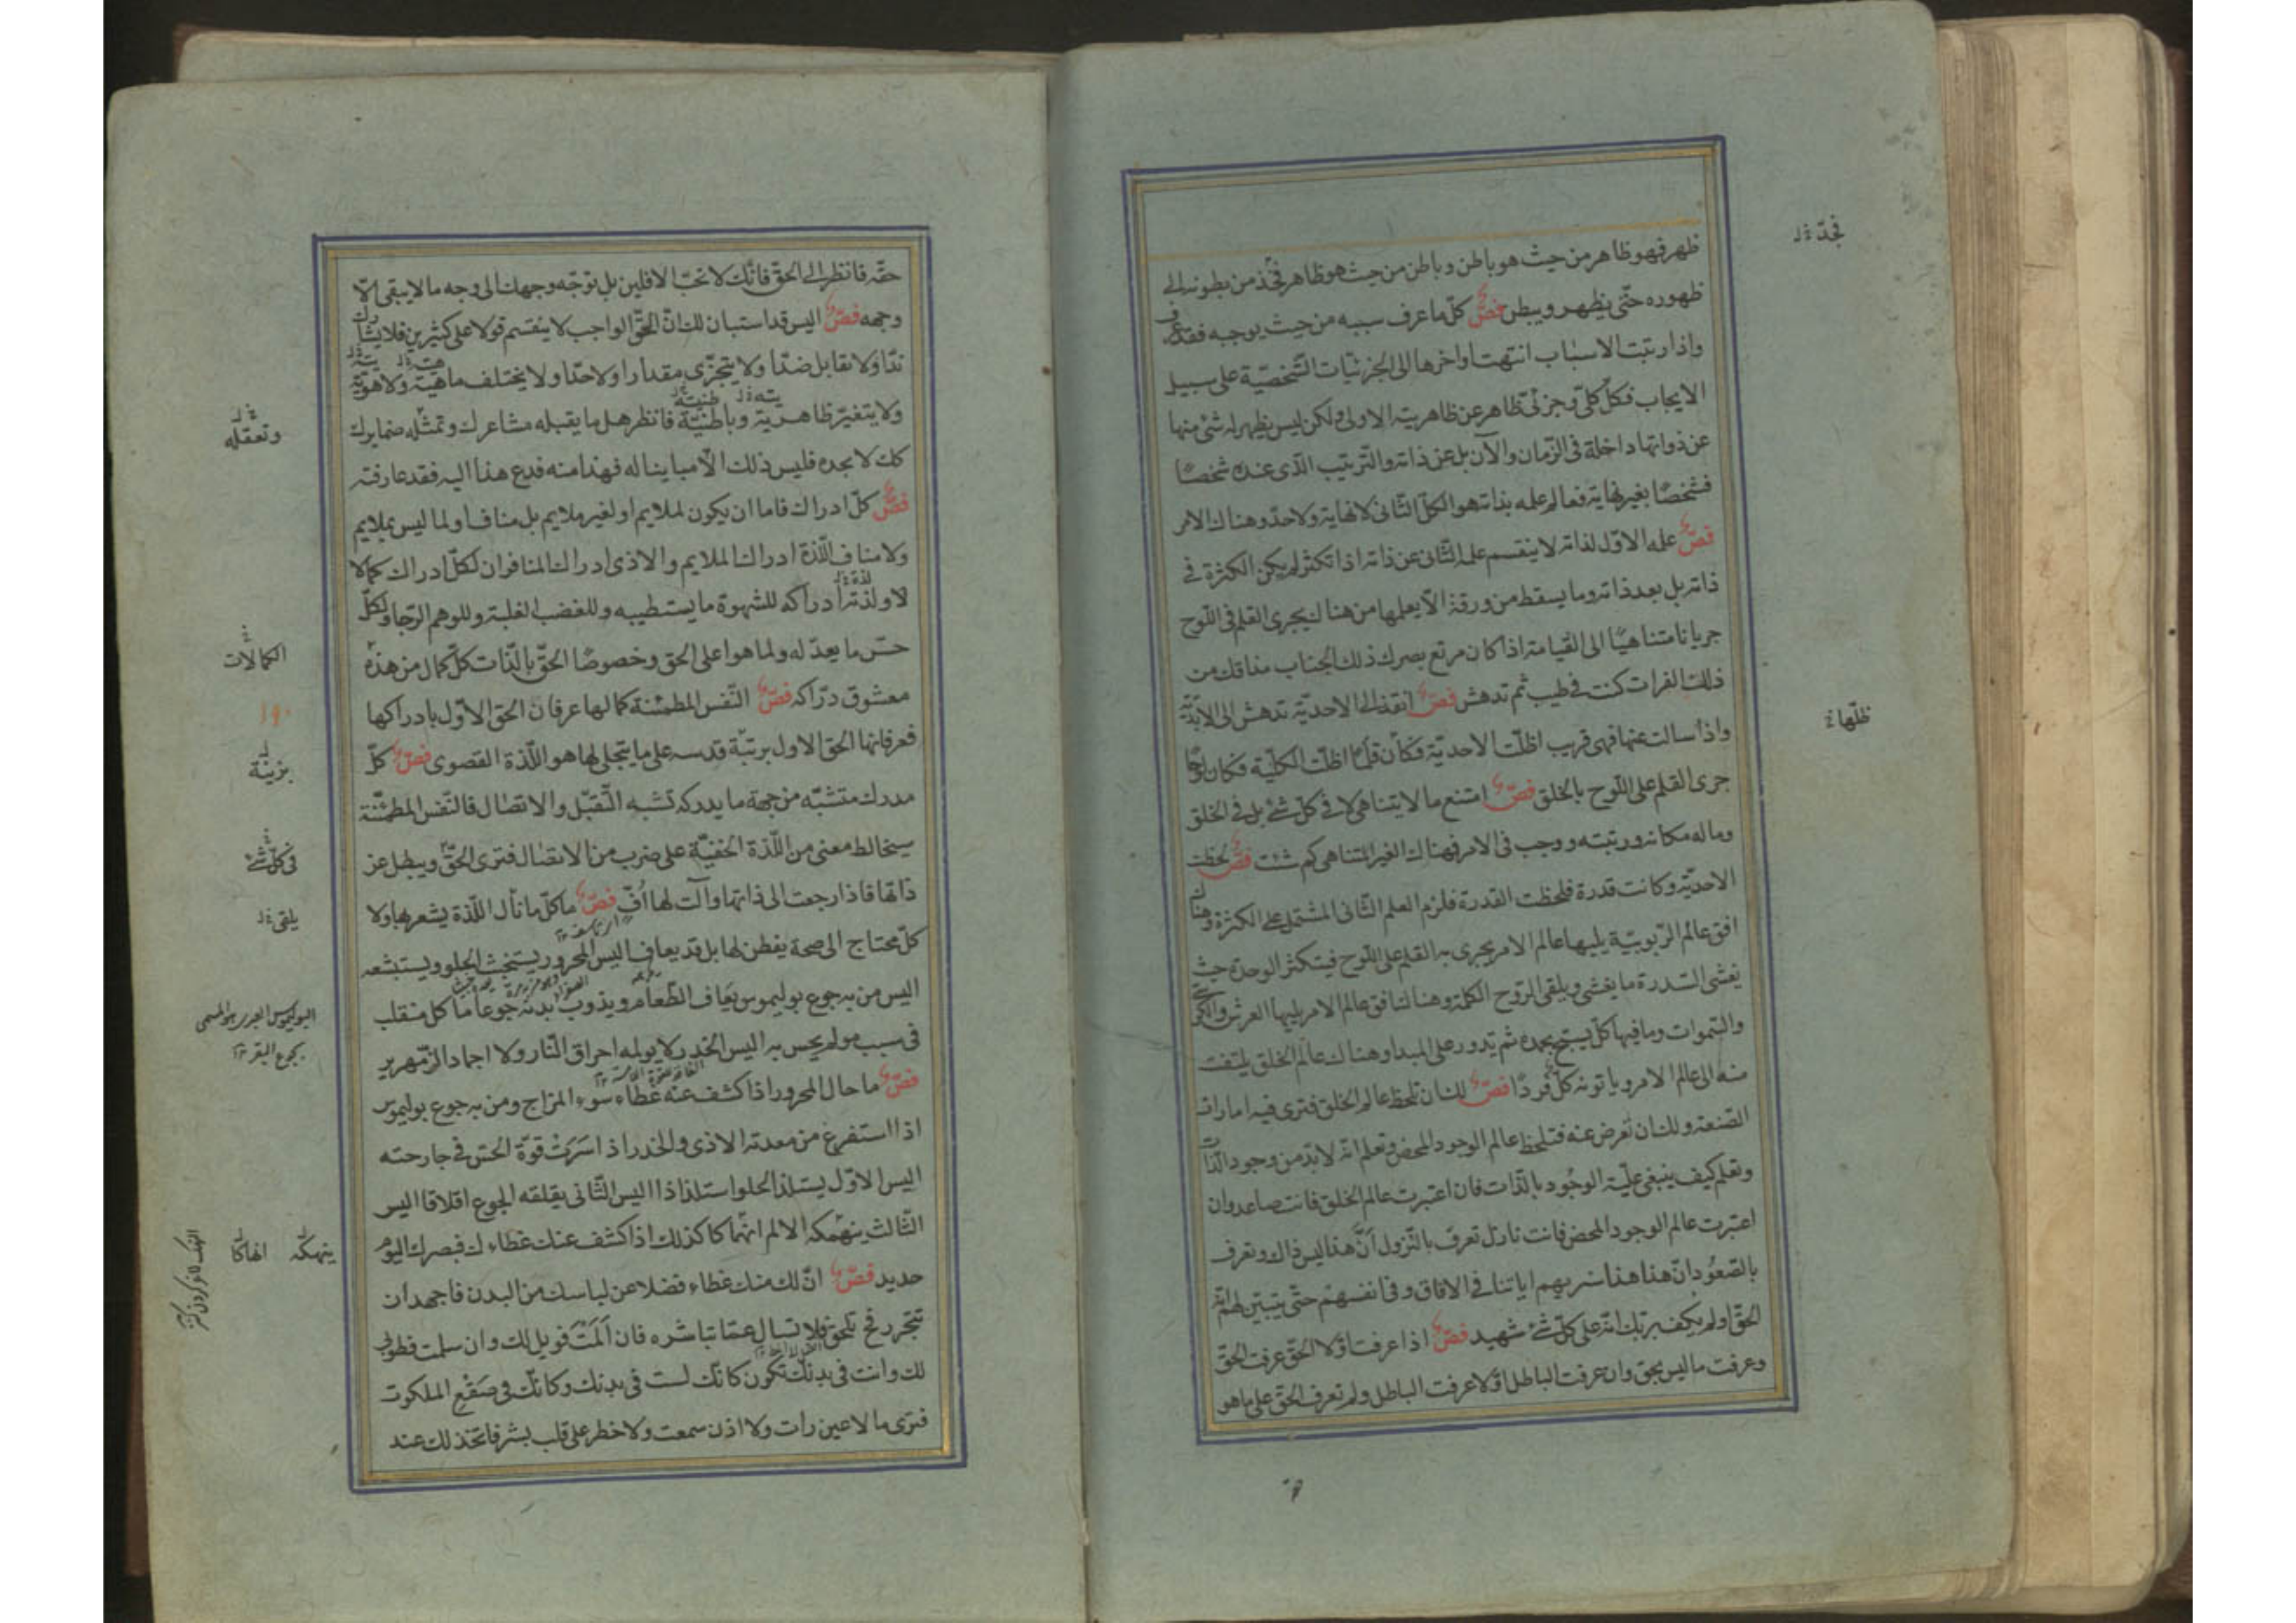 ظهر فهو ظاهر من حيث هو باطن وباطن من حيث هو ظاهر فخذ من بطونه الى
ظهوره حتى يظهر ويبطن فصّ كلّ ما عرف سببه من حيث يوجبه فقد عرف
واذا رتبت الاسباب انتهت اواخرها الى الجزئيات الشخصيّة على سبيل
الايجاب فكل كلّى وجزئى ظاهر عن ظاهريته الاولى ولكن ليس يظهر له شئ منها
عن ذواتها داخلة فى الزمان والآن بل عن ذاته والترتيب الذى عنده شخصًا
فشخصًا بغير نهاية فعالم علمه بذاته هو الكل الثانى لا نهاية ولا حد وهناك الامر
فصّ علمه الاول لذاته لا ينقسم علمه الثانى عن ذاته اذا تكثر لم يكن الكثرة فى
ذاته بل بعد ذاته وما يسقط من ورقة الا يعلمها من هناك يجرى القلم فى اللوح
جريانا متناهيًا الى القيامة اذا كان مرتع بصرك ذلك الجناب مذاقك من
ذلك الفرات كنت فى طيب ثم تدهش فصّ انفذ الى الاحديّة تدهش الى الابديّة
واذا سالت عنها فهى قريب اظلّت الاحديّة فكان قلمًا اظلّت الكليّة فكان لوحًا
جرى القلم على اللوح بالخلق فصّ امتنع ما لا يتناهى لا فى كل شئ بل فى الخلق
وماله مكانه ورتبته ووجب فى الامر فهناك الغير المتناهى كم شئت فصّ لحظت
الاحديّة وكانت قدرة فلحظت القدرة فلزم العلم الثانى المشتمل على الكثرة وهناك
افق عالم الربوبيّة يليها عالم الامر يجرى به القلم على اللوح فيتكثر الوحدة حيث
يغشى السدرة ما يغشى ويلقى الروح الكلمة وهناك افق عالم الامر يليها العرش والكرسى
والسموات وما فيها كل يسبح بحمده ثم يدور على المبدا وهناك عالم الخلق يلتفت
منه الى عالم الامر وياتونه كل فردًا فصّ لك ان تلحظ عالم الخلق فترى فيه امارات
الصنعة ولك ان تعرض عنه فتلحظ عالم الوجود المحض وتعلم انه لا بد من وجود بالذات
وتعلم كيف ينبغى عليه الوجود بالذات فان اعتبرت عالم الخلق فانت صاعد وان
اعتبرت عالم الوجود المحض فانت نازل تعرف بالنزول انّ هذا ليس ذاك وتعرف
بالصعود انّ هذا هذا سنريهم اياتنا فى الافاق وفى انفسهم حتى يتبين لهم انه
الحق اولم يكف بربك انه على كل شئ شهيد فصّ اذا عرفت اوّلا الحق عرفت الحق
وعرفت ما ليس بحق وان عرفت الباطل اوّلا عرفت الباطل ولم تعرف الحق على ما هو
فخذ
ظلّها
حقه فانظر الى الحق فانك لا تحب الافلين بل توجه وجهك الى وجه ما لا يبقى الّا
وجهه فصّ اليس قد استبان لك انّ الحق الواجب لا ينقسم قولا على كثيرين فلا يشارك
ندّا ولا يقابل ضدّا ولا يتجزى مقدارا ولا حدّا ولا يختلف ماهية ولا هويّة
ولا يتغير ظاهريّة وباطنيّة فانظر هل ما يقبله مشاعرك وتمثله ضمايرك
كك لا تجده فليس ذلك الا مباينا له فهذا منه فدع هذا اليه فقد عارفته
فصّ كلّ ادراك فاما ان يكون لملايم او لغير ملايم بل مناف او لما ليس بملايم
ولا مناف اللذة ادراك الملايم والاذى ادراك المنافر ان لكل ادراك كمالا
لا ولذته ادراكه للشهوة ما يستطيبه وللغضب الغلبة وللوهم الرجا ولكل
حسّ ما يعدّ له ولما هو اعلى الحق وخصوصًا الحق بالذات كل كمال من هذه
معشوق درّاكه فصّ النفس المطمئنة كمالها عرفان الحق الاول بادراكها
فعرفانها الحق الاول برتبة قدسه على ما يتجلى لها هو اللذة القصوى فصّ كلّ
مدرك متشبّه من جهة ما يدركه تشبه التقبّل والاتصال فالنفس المطمئنّة
سيخالط معنى من اللذة الخفيّة على ضرب من الاتصال فترى الحق ويبطل عن
ذاتها فاذا رجعت الى ذاتها وآلت لها افّ فصّ ما كلّ ما نال اللذة يشعر بها ولا
كلّ محتاج الى صحة يفطن لها بل قد يعاف اليس المحرور يستخبث الحلو ويستبشعه
اليس من به جوع بوليموس يعاف الطعام ويذوب بدنه جوعا ما كل منقلب
فى سبب مولم يحس به اليس الخدر لا يولمه احراق النار ولا اجماد الزمهرير
فصّ ما حال المحرور اذا كشف عنه غطاء سوء المزاج ومن به جوع بوليموس
اذا استفرغ من معدته الاذى والخدر اذ اسرت قوة الحس فى جارحته
اليس الاول يستلذ الحلو استلذاذا اليس الثانى يقلقه الجوع اقلاقا اليس
الثالث ينهمكه الالم انهماكا كذلك اذا كشف عنك غطاءك فبصرك اليوم
حديد فصّ انّ لك منك غطاء فضلا عن لباسك من البدن فاجهد ان
تتجرد فح تلحق فلا تسال عمّا تباشره فان المت فويل لك وان سلمت فطوبى
لك وانت فى بدنك تكون كانك لست فى بدنك وكانك فى صقع الملكوت
فترى ما لا عين رات ولا اذن سمعت ولا خطر على قلب بشر فاتخذ لك عند
وتعقله
الكمالات
بزينة
فى كل شئ
يلقى
بجوع البقر
ينهكه انهاكا